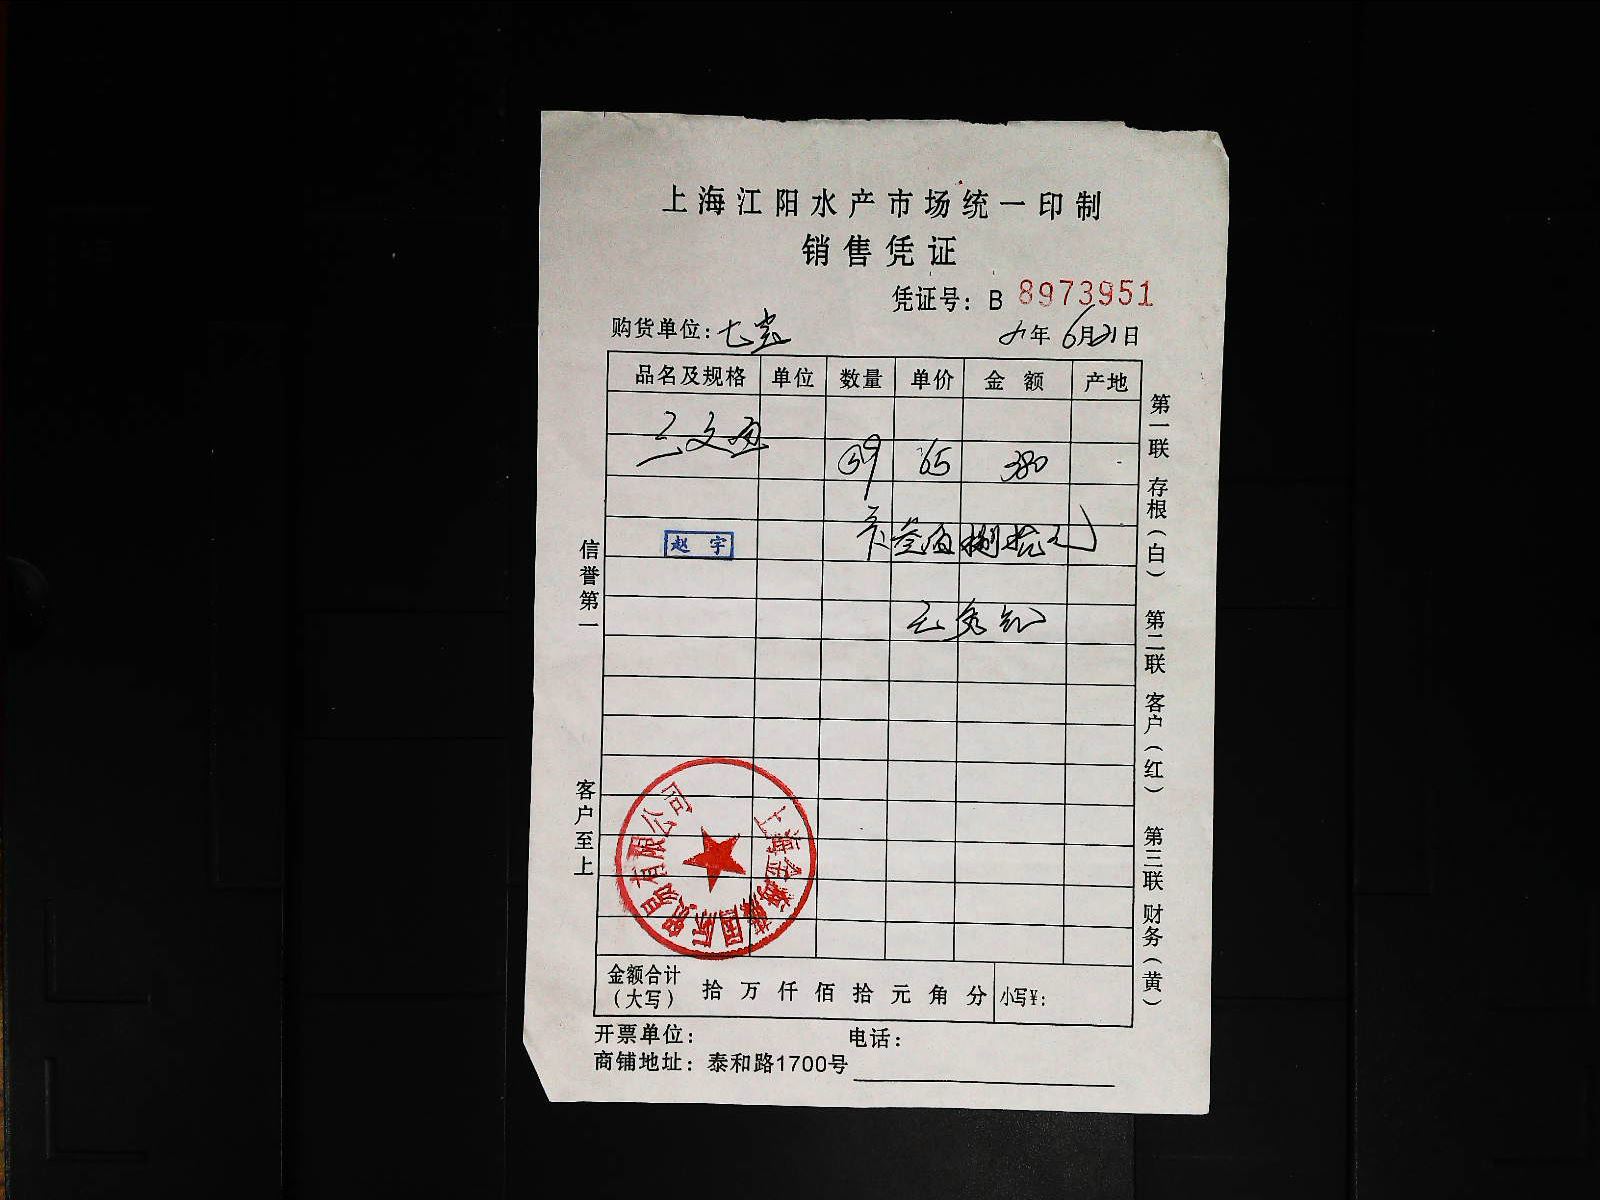 上海江阳水产市场统一印制
销售凭证
凭证号：B 8973951
购货单位：七宝
年 6月21日
品名及规格 单位 数量 单价 金额 产地
三文鱼 59 65 380
叁佰捌拾元
赵宇
信誉第一
客户至上
第一联 存根（白） 第二联 客户（红） 第三联 财务（黄）
国际贸易有限公司
金额合计（大写） 拾 万 仟 佰 拾 元 角 分 小写¥：
开票单位： 电话：
商铺地址：泰和路1700号